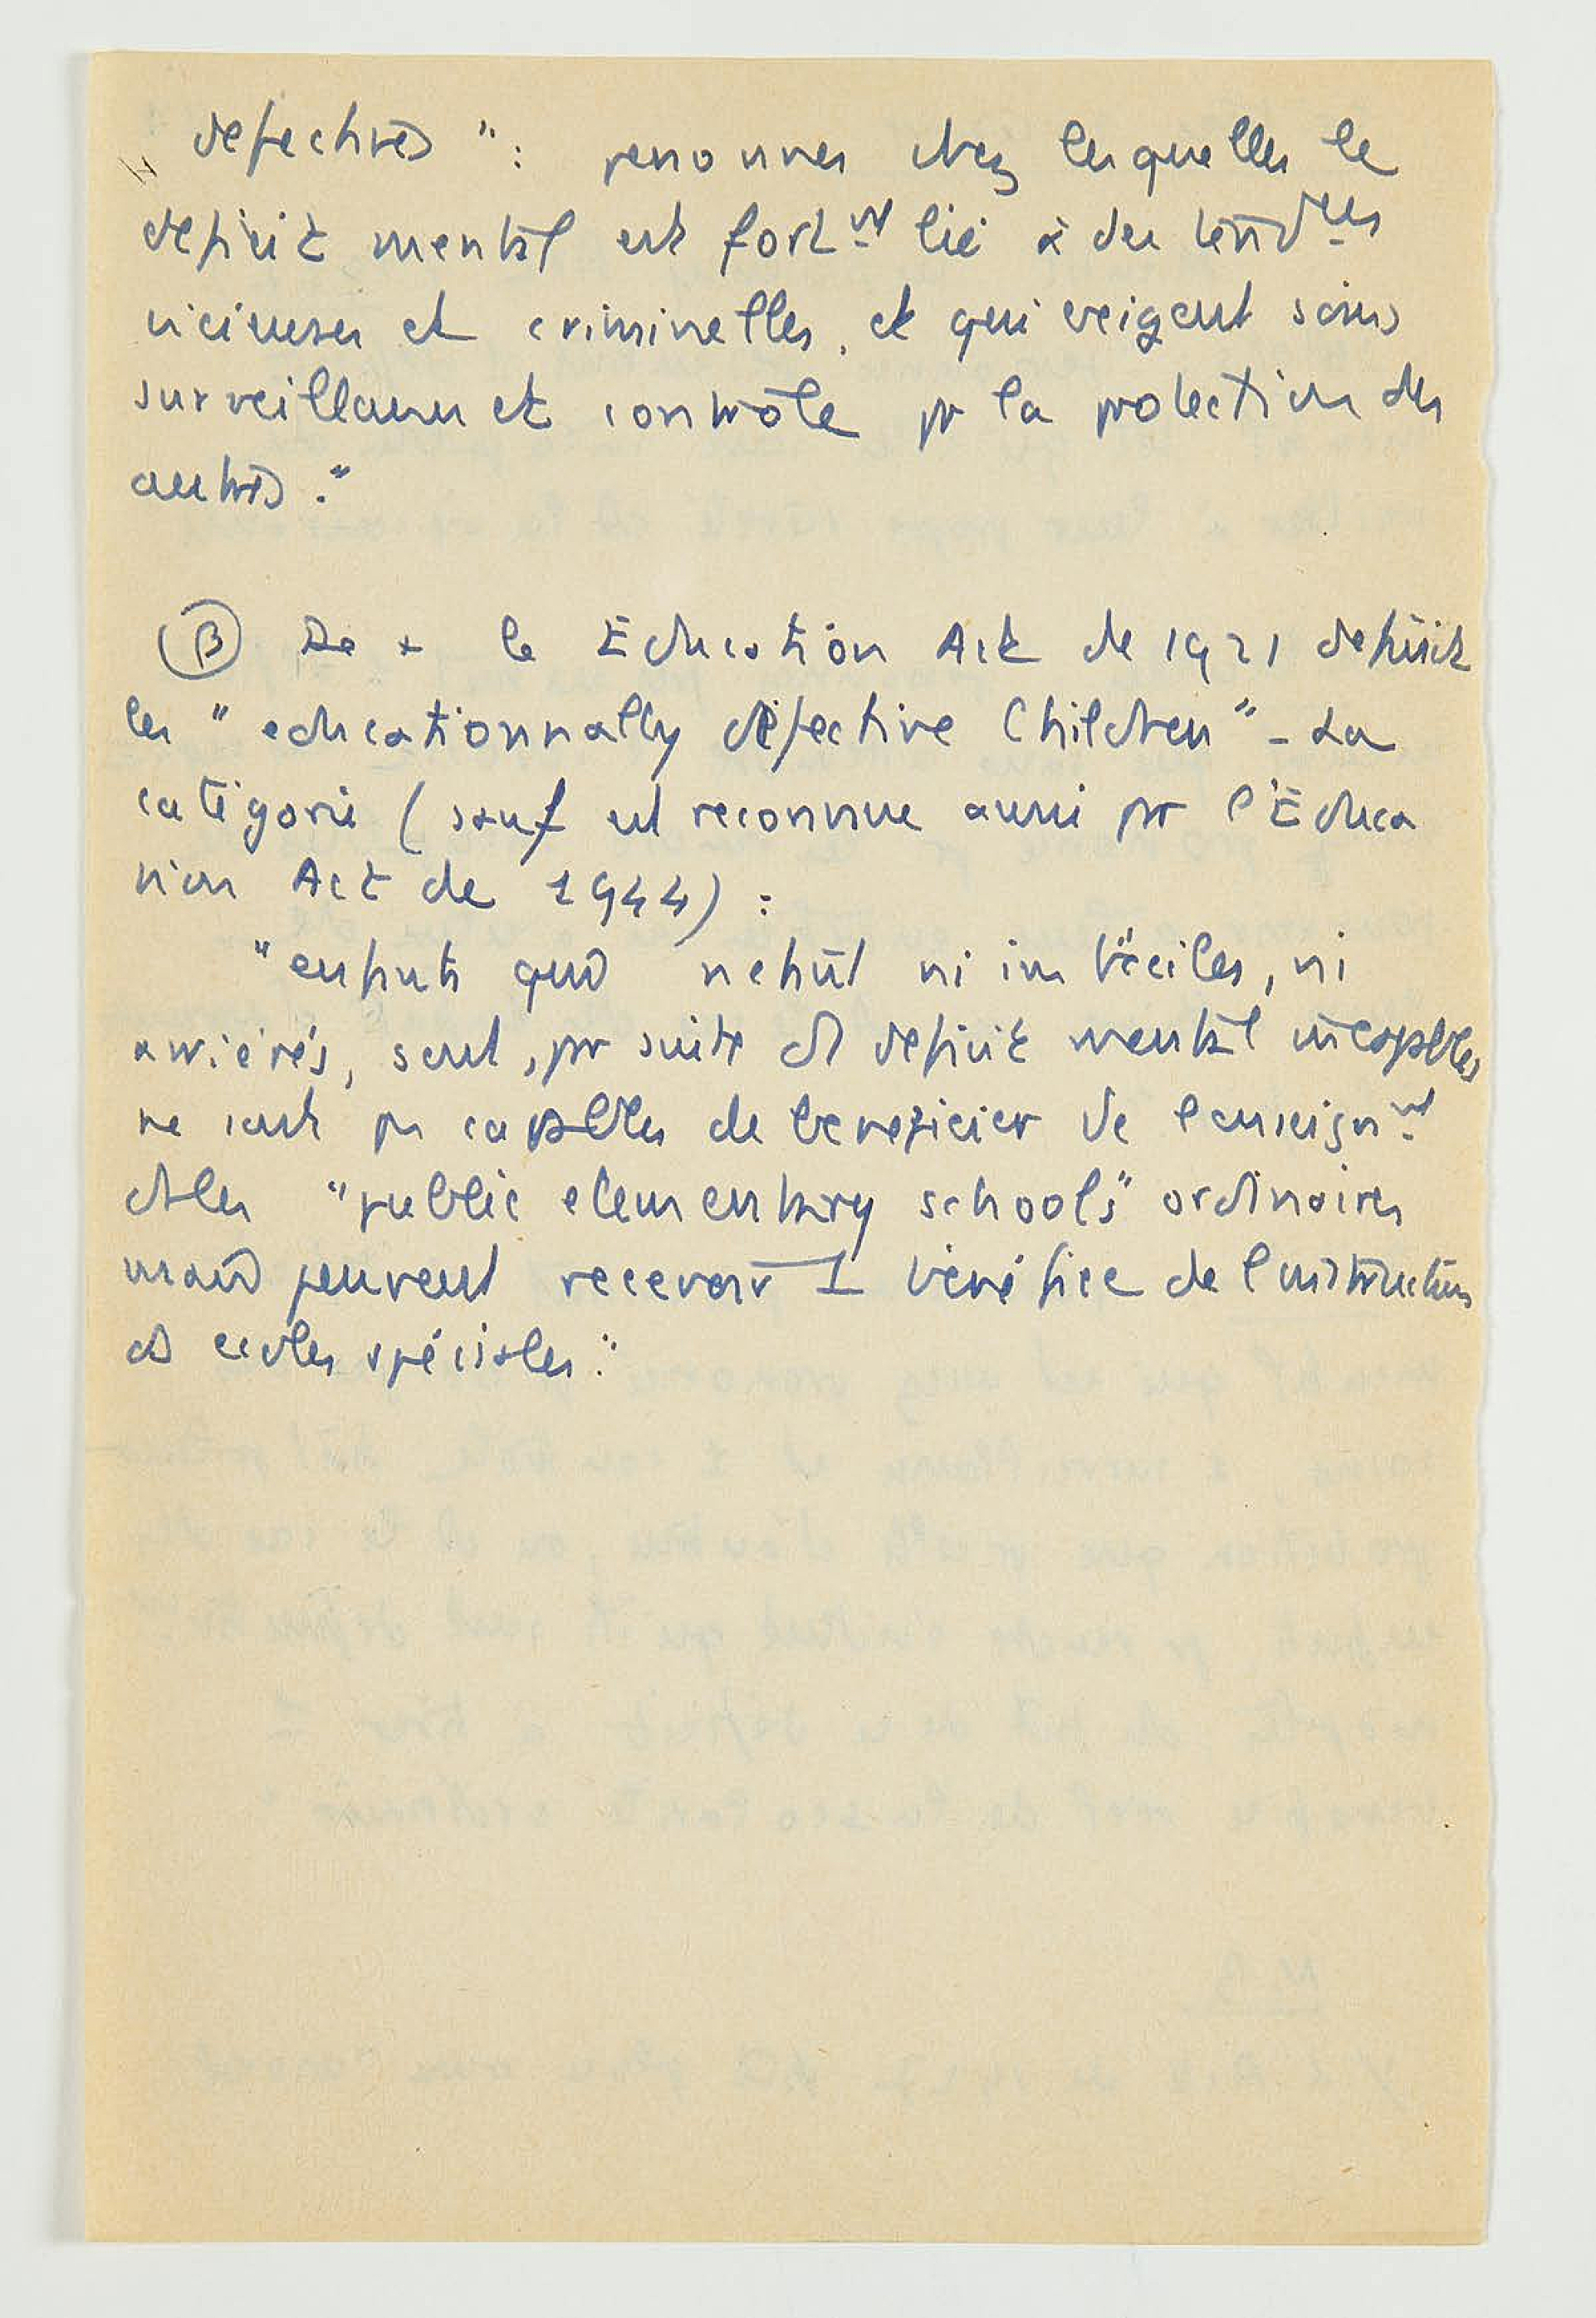 " defectives " : personnes chez lesquelles le
deficit mental est fortnt lié à des tendces
vicieuses et criminelles, et qui exigent soins
surveillance et contrôle pr la protection des
autres."
(B) De + le Education Act de 1921 définit
les " educationnally defective Children " - La
catégorie ( est reconnue aussi pr l'Educa
tion Act de 1944) :
"enfants qui n'étant ni imbéciles, ni
arriérés, sont, pr suite deficit mental incapables
ne sont pas capables de beneficier de l'enseignnt
ds les "public elementary schools" ordinaires
mais peuvent recevoir 1 bénéfice de l'instruction
ds ecoles spéciales."